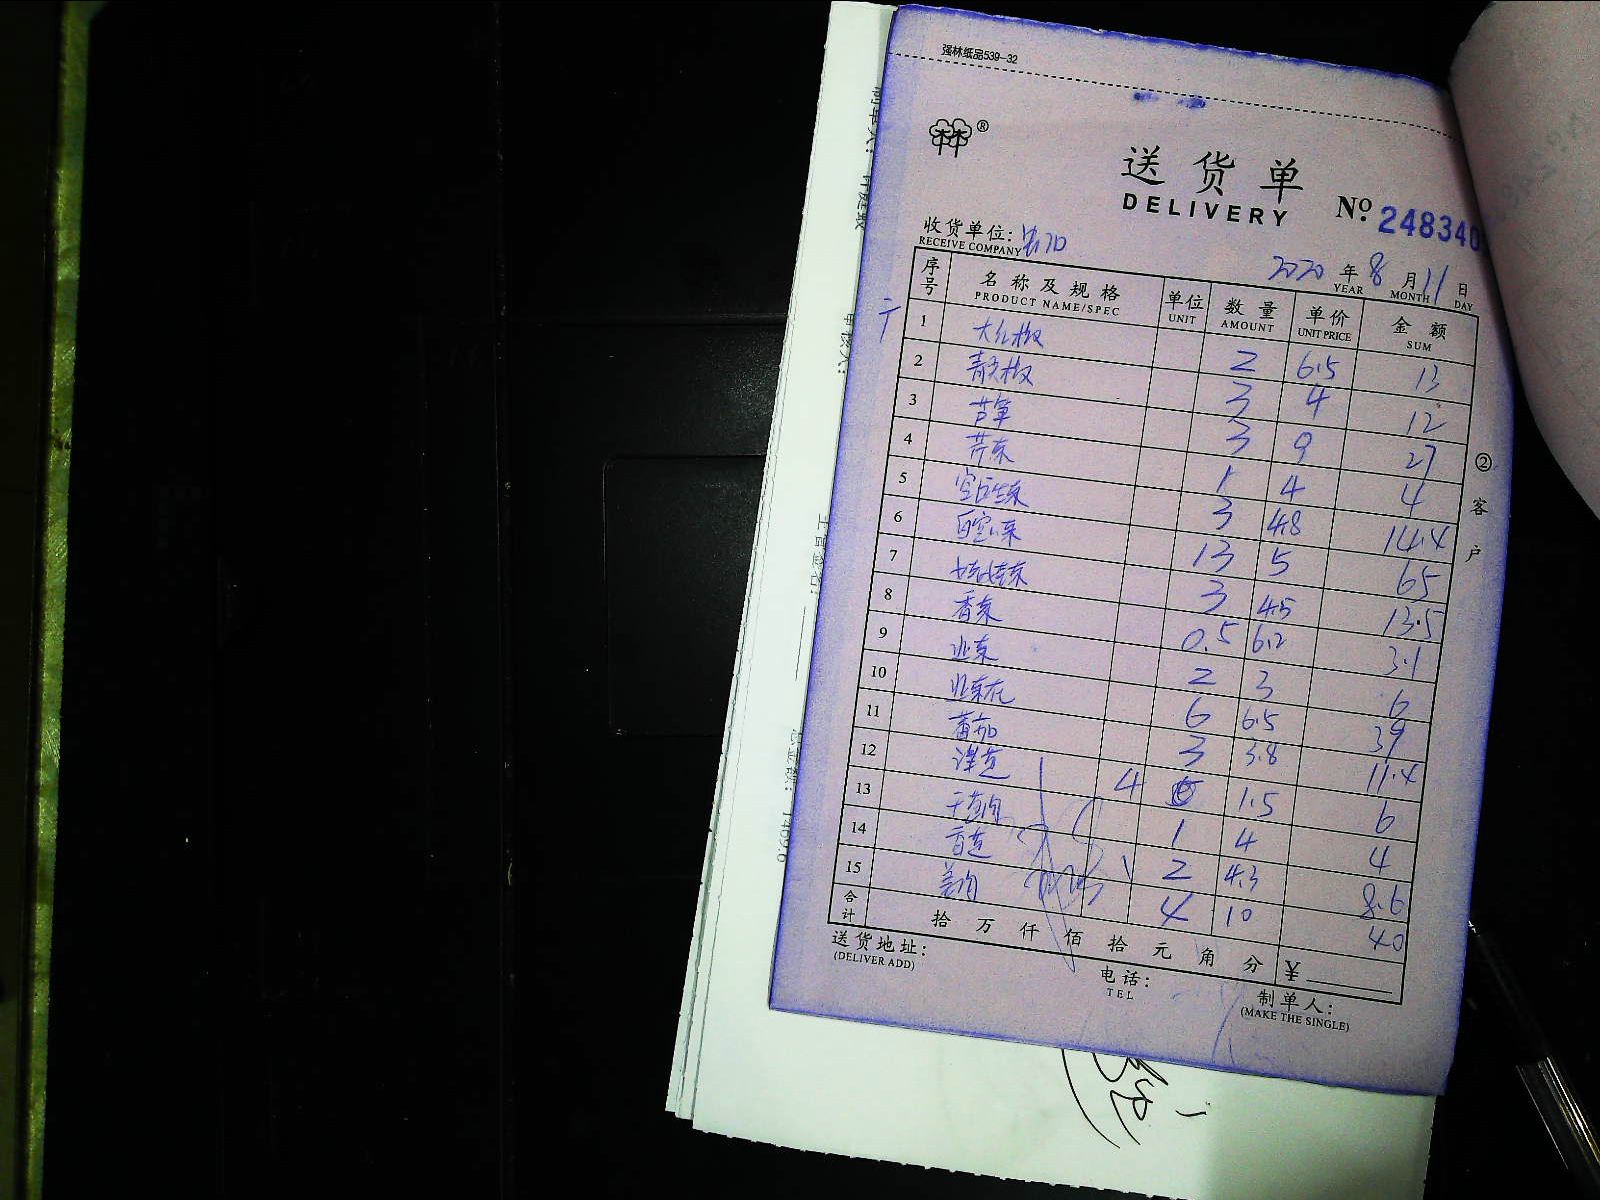 强林纸品539-32
®
送货单
DELIVERY
Nº 248340
收货单位:
RECEIVE COMPANY
2020 年 8 月 11 日
YEAR MONTH DAY
序号 名称及规格 单位 数量 单价 金额
PRODUCT NAME/SPEC UNIT AMOUNT UNIT PRICE SUM
1 大红椒 2 6.5 13
2 青椒 3 4 12
3 芦笋 3 9 27
4 芹菜 1 4 4
5 3 4.8 14.4
6 13 5 65
7 3 4.5 13.5
8 香菜 0.5 6.2 3.1
9 韭菜 2 3 6
10 韭菜花 6 6.5 39
11 番茄 3 3.8 11.4
12 4 1.5 6
13 1 4 4
14 2 4.3 8.6
15 姜肉 4 10 40
合计 拾 万 仟 佰 拾 元 角 分 ¥
送货地址:
(DELIVER ADD)
电话:
TEL
制单人:
(MAKE THE SINGLE)
② 客户
总金额: 1469.6